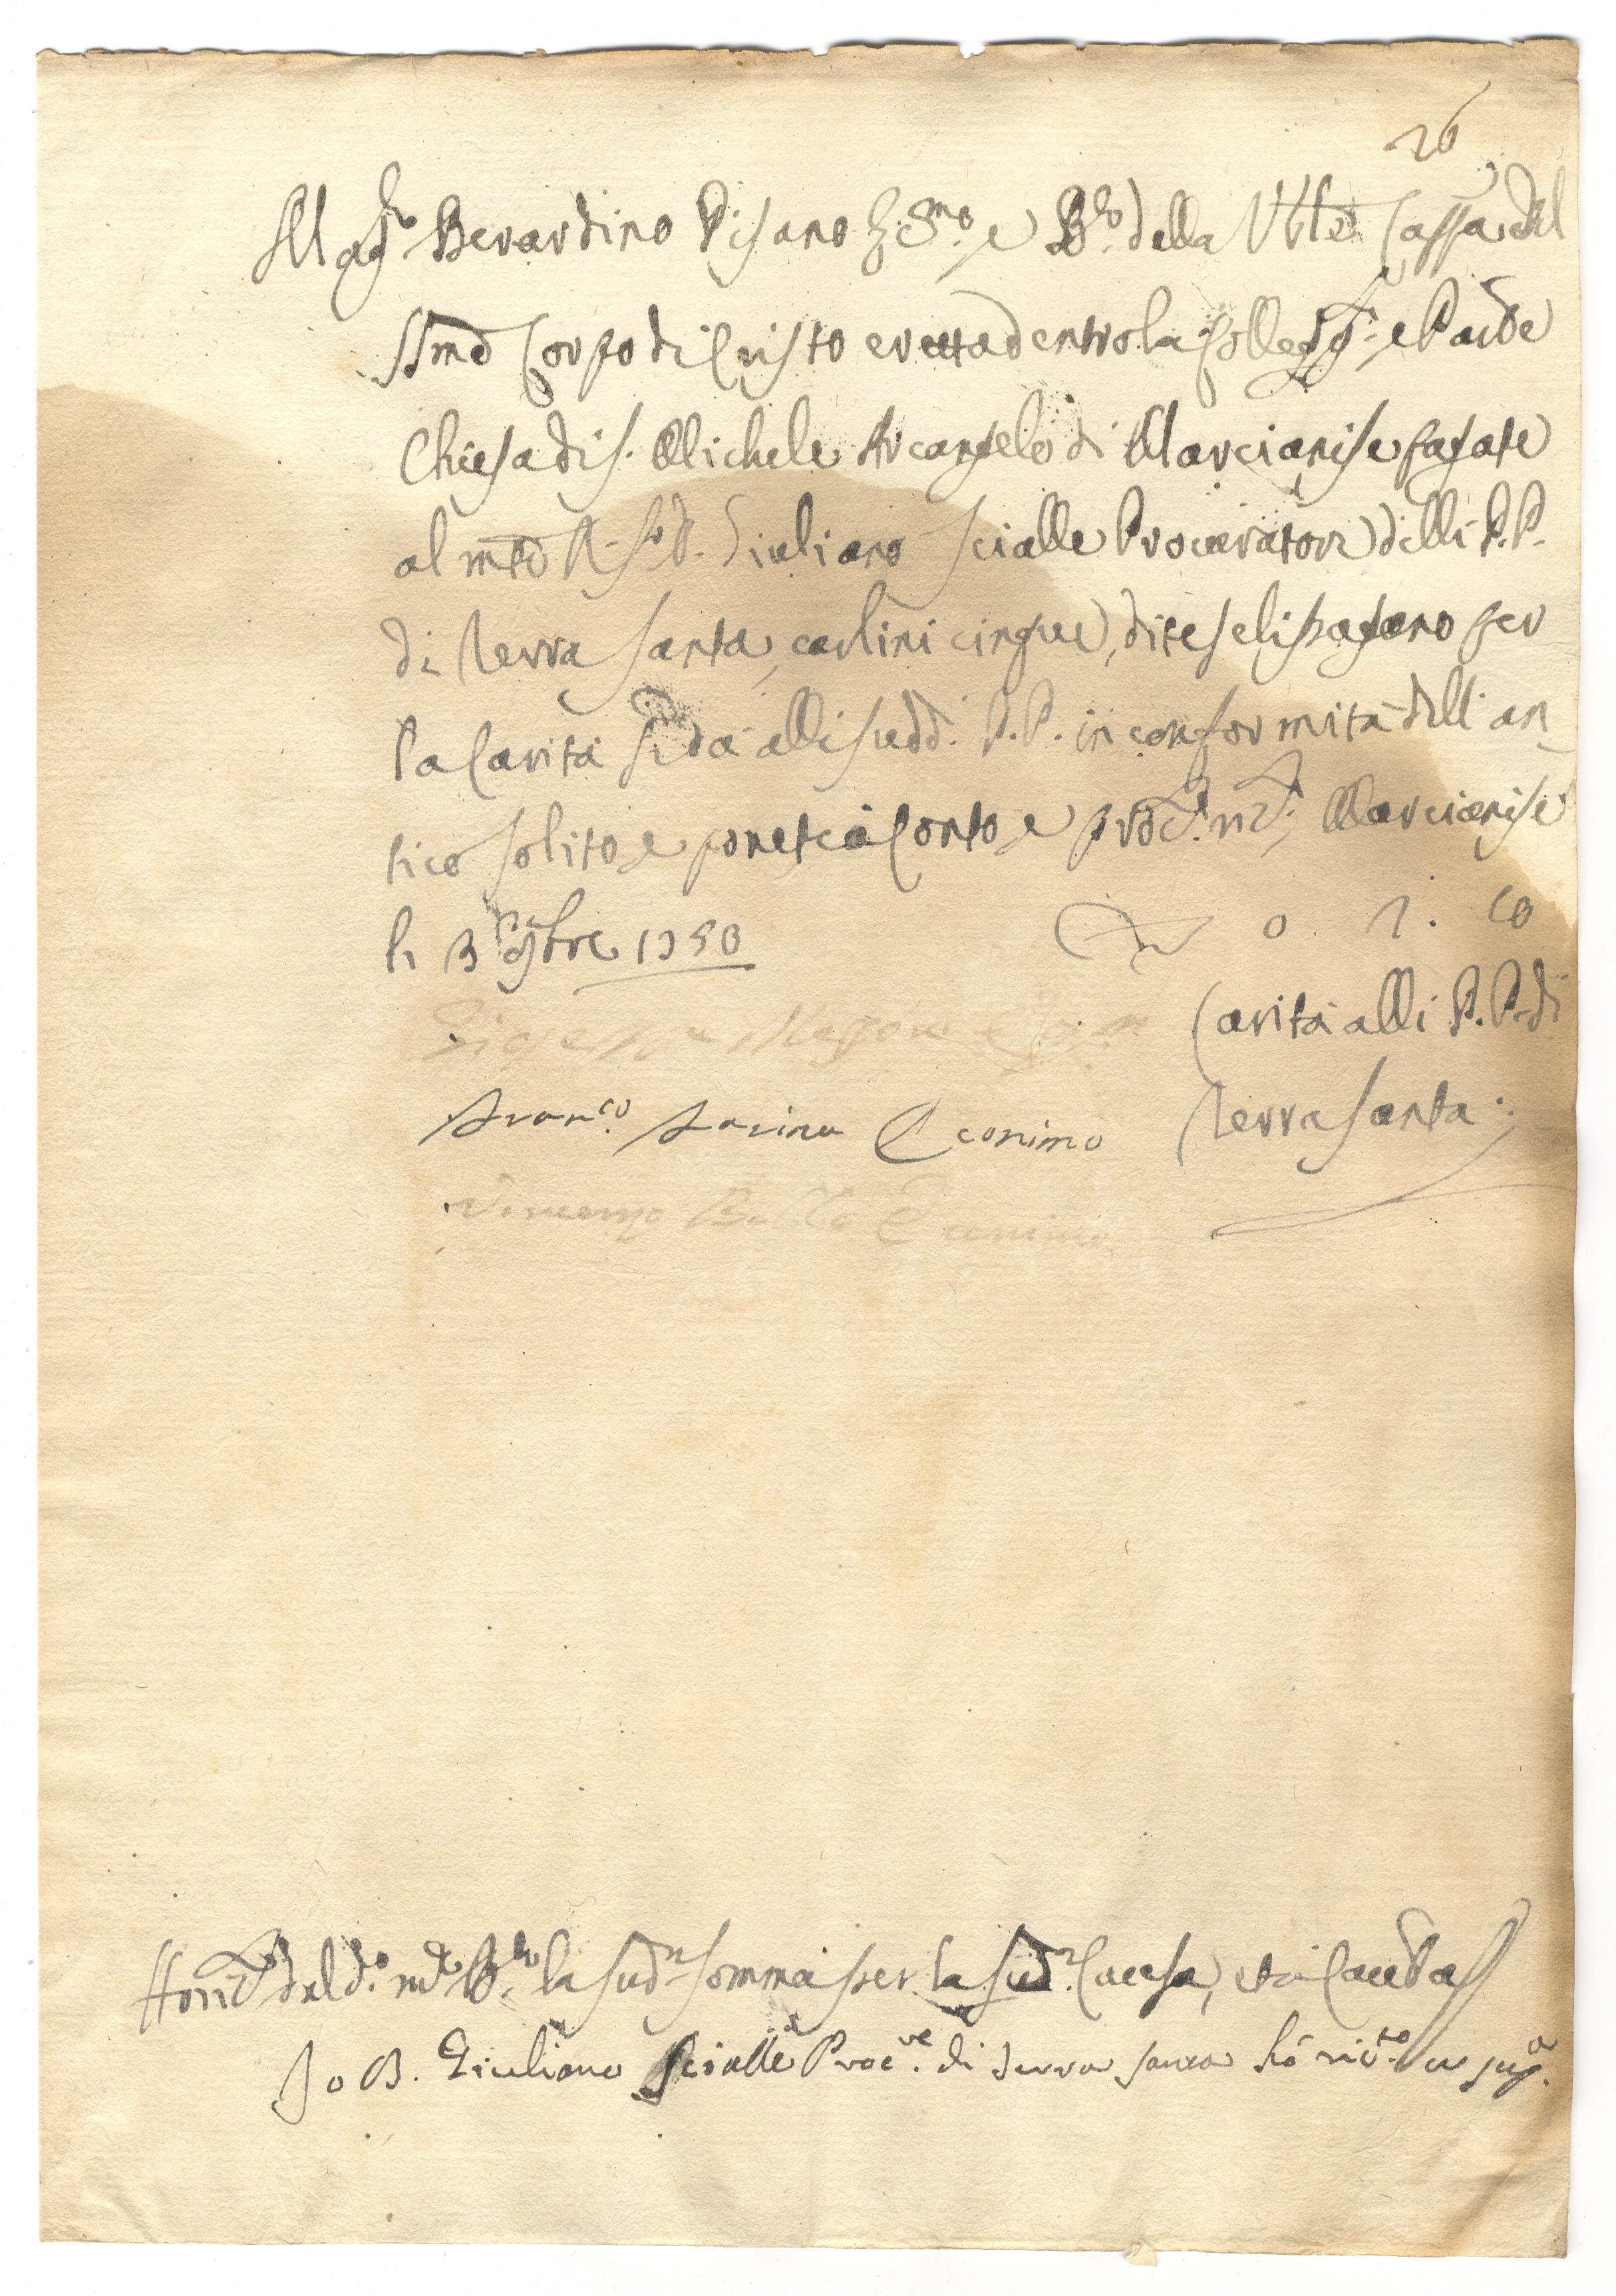 26
Mag.co Berardino Pisano e B.ro della Ven.le Cassa del
SSmo Corpo di Cristo eretta dentro la Colleg.ta e Par.le
Chiesa di S. Michele Arcangelo di Marcianise pagate
al m.to R. S.r D. Giuliano Scialle Procuratore delli P.P.
di Terra Santa carlini cinque, dite seli pagano per
la Carità si dà alli sudd. P.P. in conformità dell'an
tico solito e ponete à Conto e Marcianise
li 3 1750
0. 2. 10
Carità alli P.P. di
Terra Santa
Fran.co Farina Economo
Vincenzo Economo
dal d.o m.co B.ro la sud.a somma per la sud.a Causa,
Io D. Giuliano Scialle Proc.re di Terra Santa hò ric.to ut sup.a